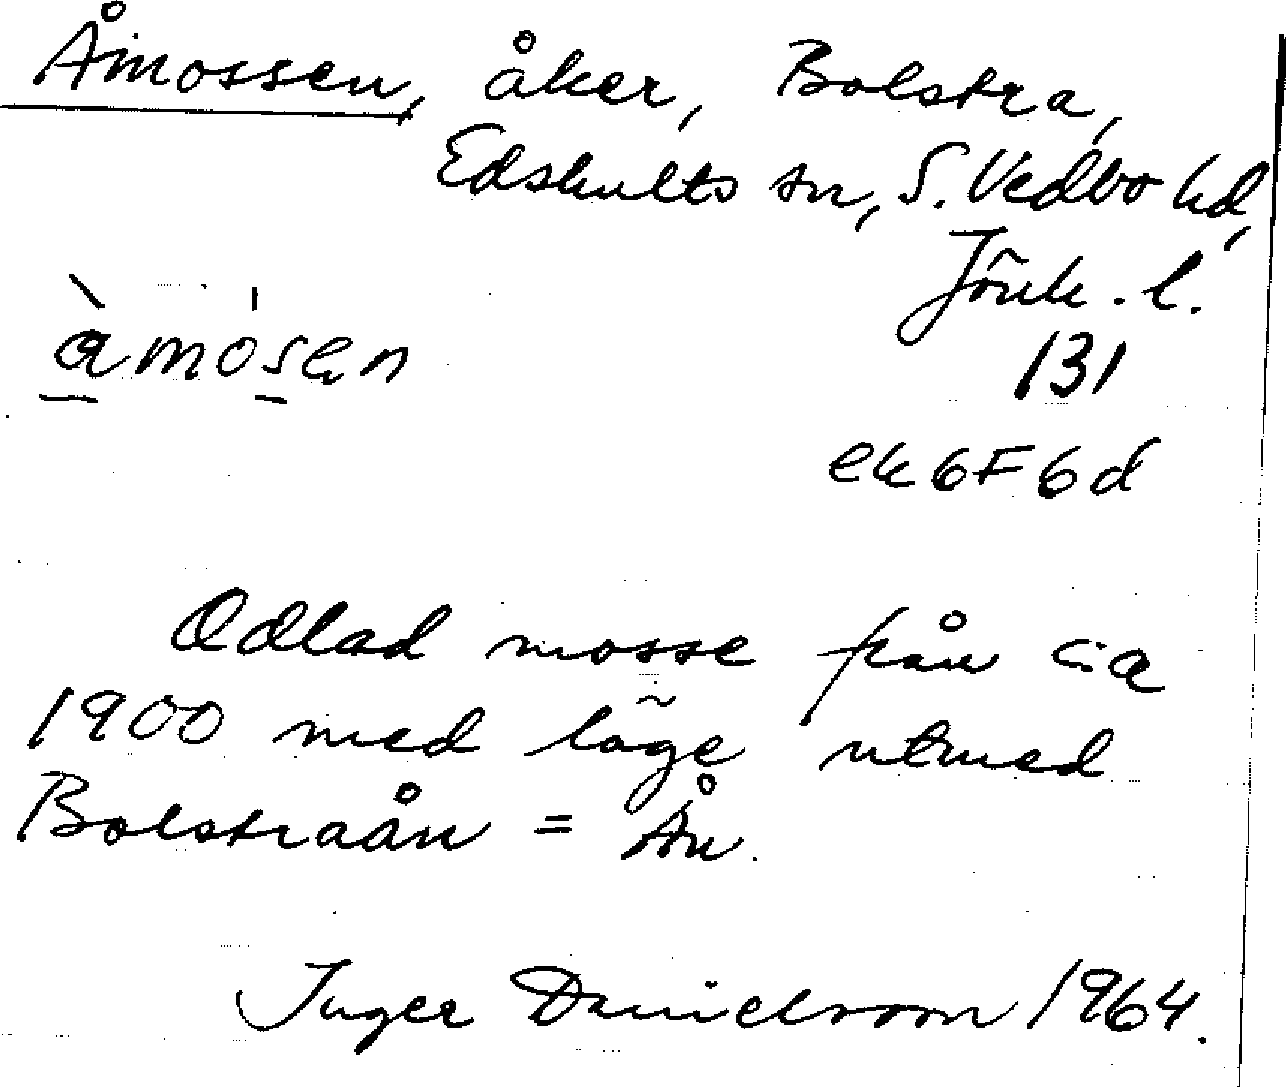 Åmossen, åker, Bolstra,
Edshults sn, S. Vedbo hd,
Jönk. l.
àmósen
131
ek 6F6d
Odlad mosse från ca
1900 med läge utmed
Bolstraån = Ån.
Inger Danielsson 1964.